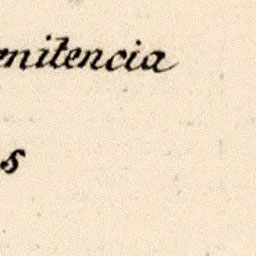 enitencia
s